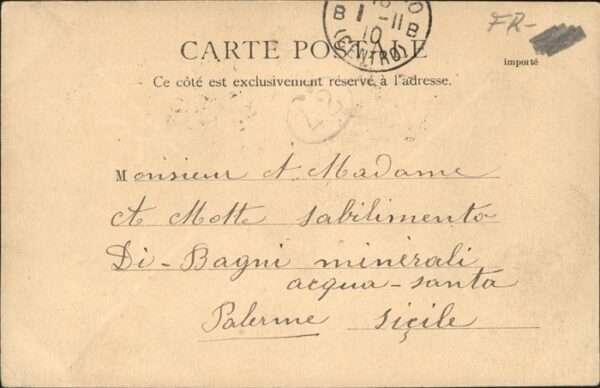 B 1-11 B
10
(CENTRO)
FR-
CARTE POSTALE
importé
Ce côté est exclusivement réservé à l'adresse.
Monsieur et Madame
A Motte sabilimento
Di-Bagni minérali
acqua-santa
Palerme siçile